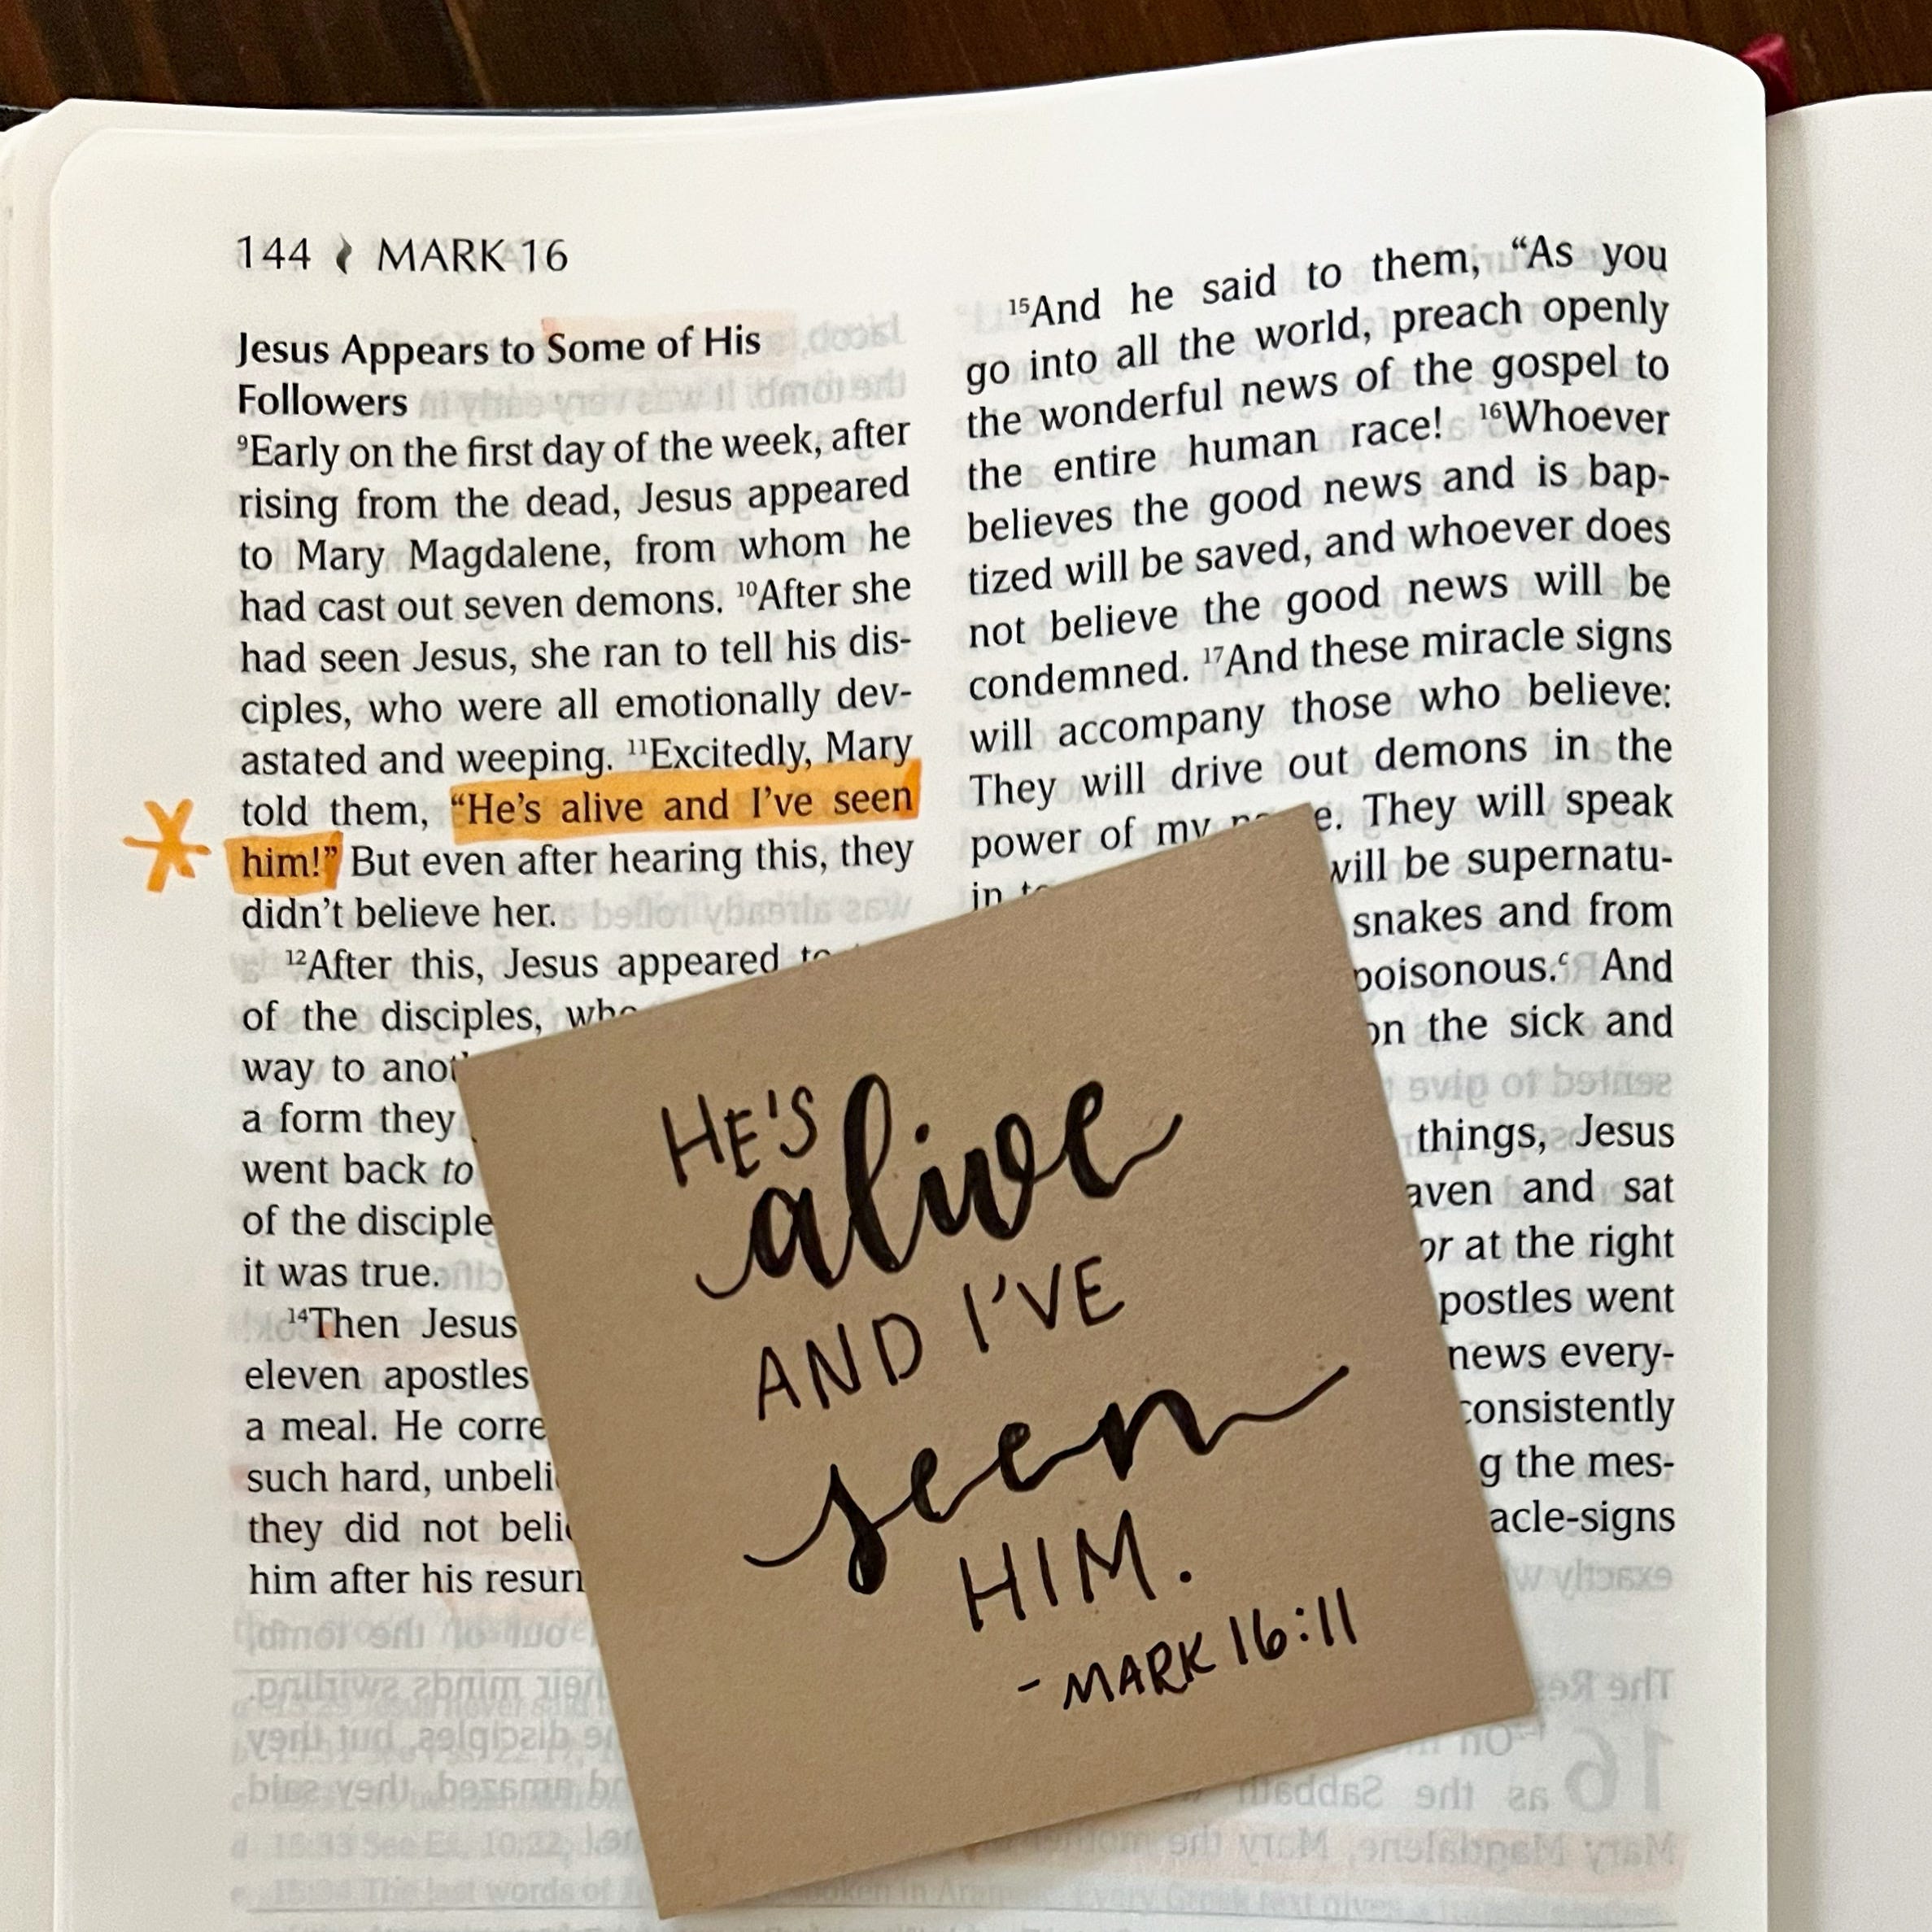 144 MARK 16
Jesus Appears to Some of His
Followers
9Early on the first day of the week, after
rising from the dead, Jesus appeared
to Mary Magdalene, from whom he
had cast out seven demons. 10After she
had seen Jesus, she ran to tell his dis-
ciples, who were all emotionally dev-
astated and weeping. 11Excitedly, Mary
told them, “He’s alive and I’ve seen
him!” But even after hearing this, they
didn’t believe her.
12After this, Jesus appeared to
of the disciples, who
way to
a form they
went back to
of the
it was true.
14Then Jesus
eleven apostles
a meal. He
such hard,
they did not
him after his
15And he said to them, “As you
go into all the world, preach openly
the wonderful news of the gospel to
the entire human race! 16Whoever
believes the good news and is bap-
tized will be saved, and whoever does
not believe the good news will be
condemned. 17And these miracle signs
will accompany those who believe:
They will drive out demons in the
power of my They will speak
in will be supernatu-
snakes and from
poisonous.c And
on the sick and
things, Jesus
and sat
at the right
went
news every-
consistently
the mes-
HE'S
alive
AND I'VE
seen
HIM.
- MARK 16:11